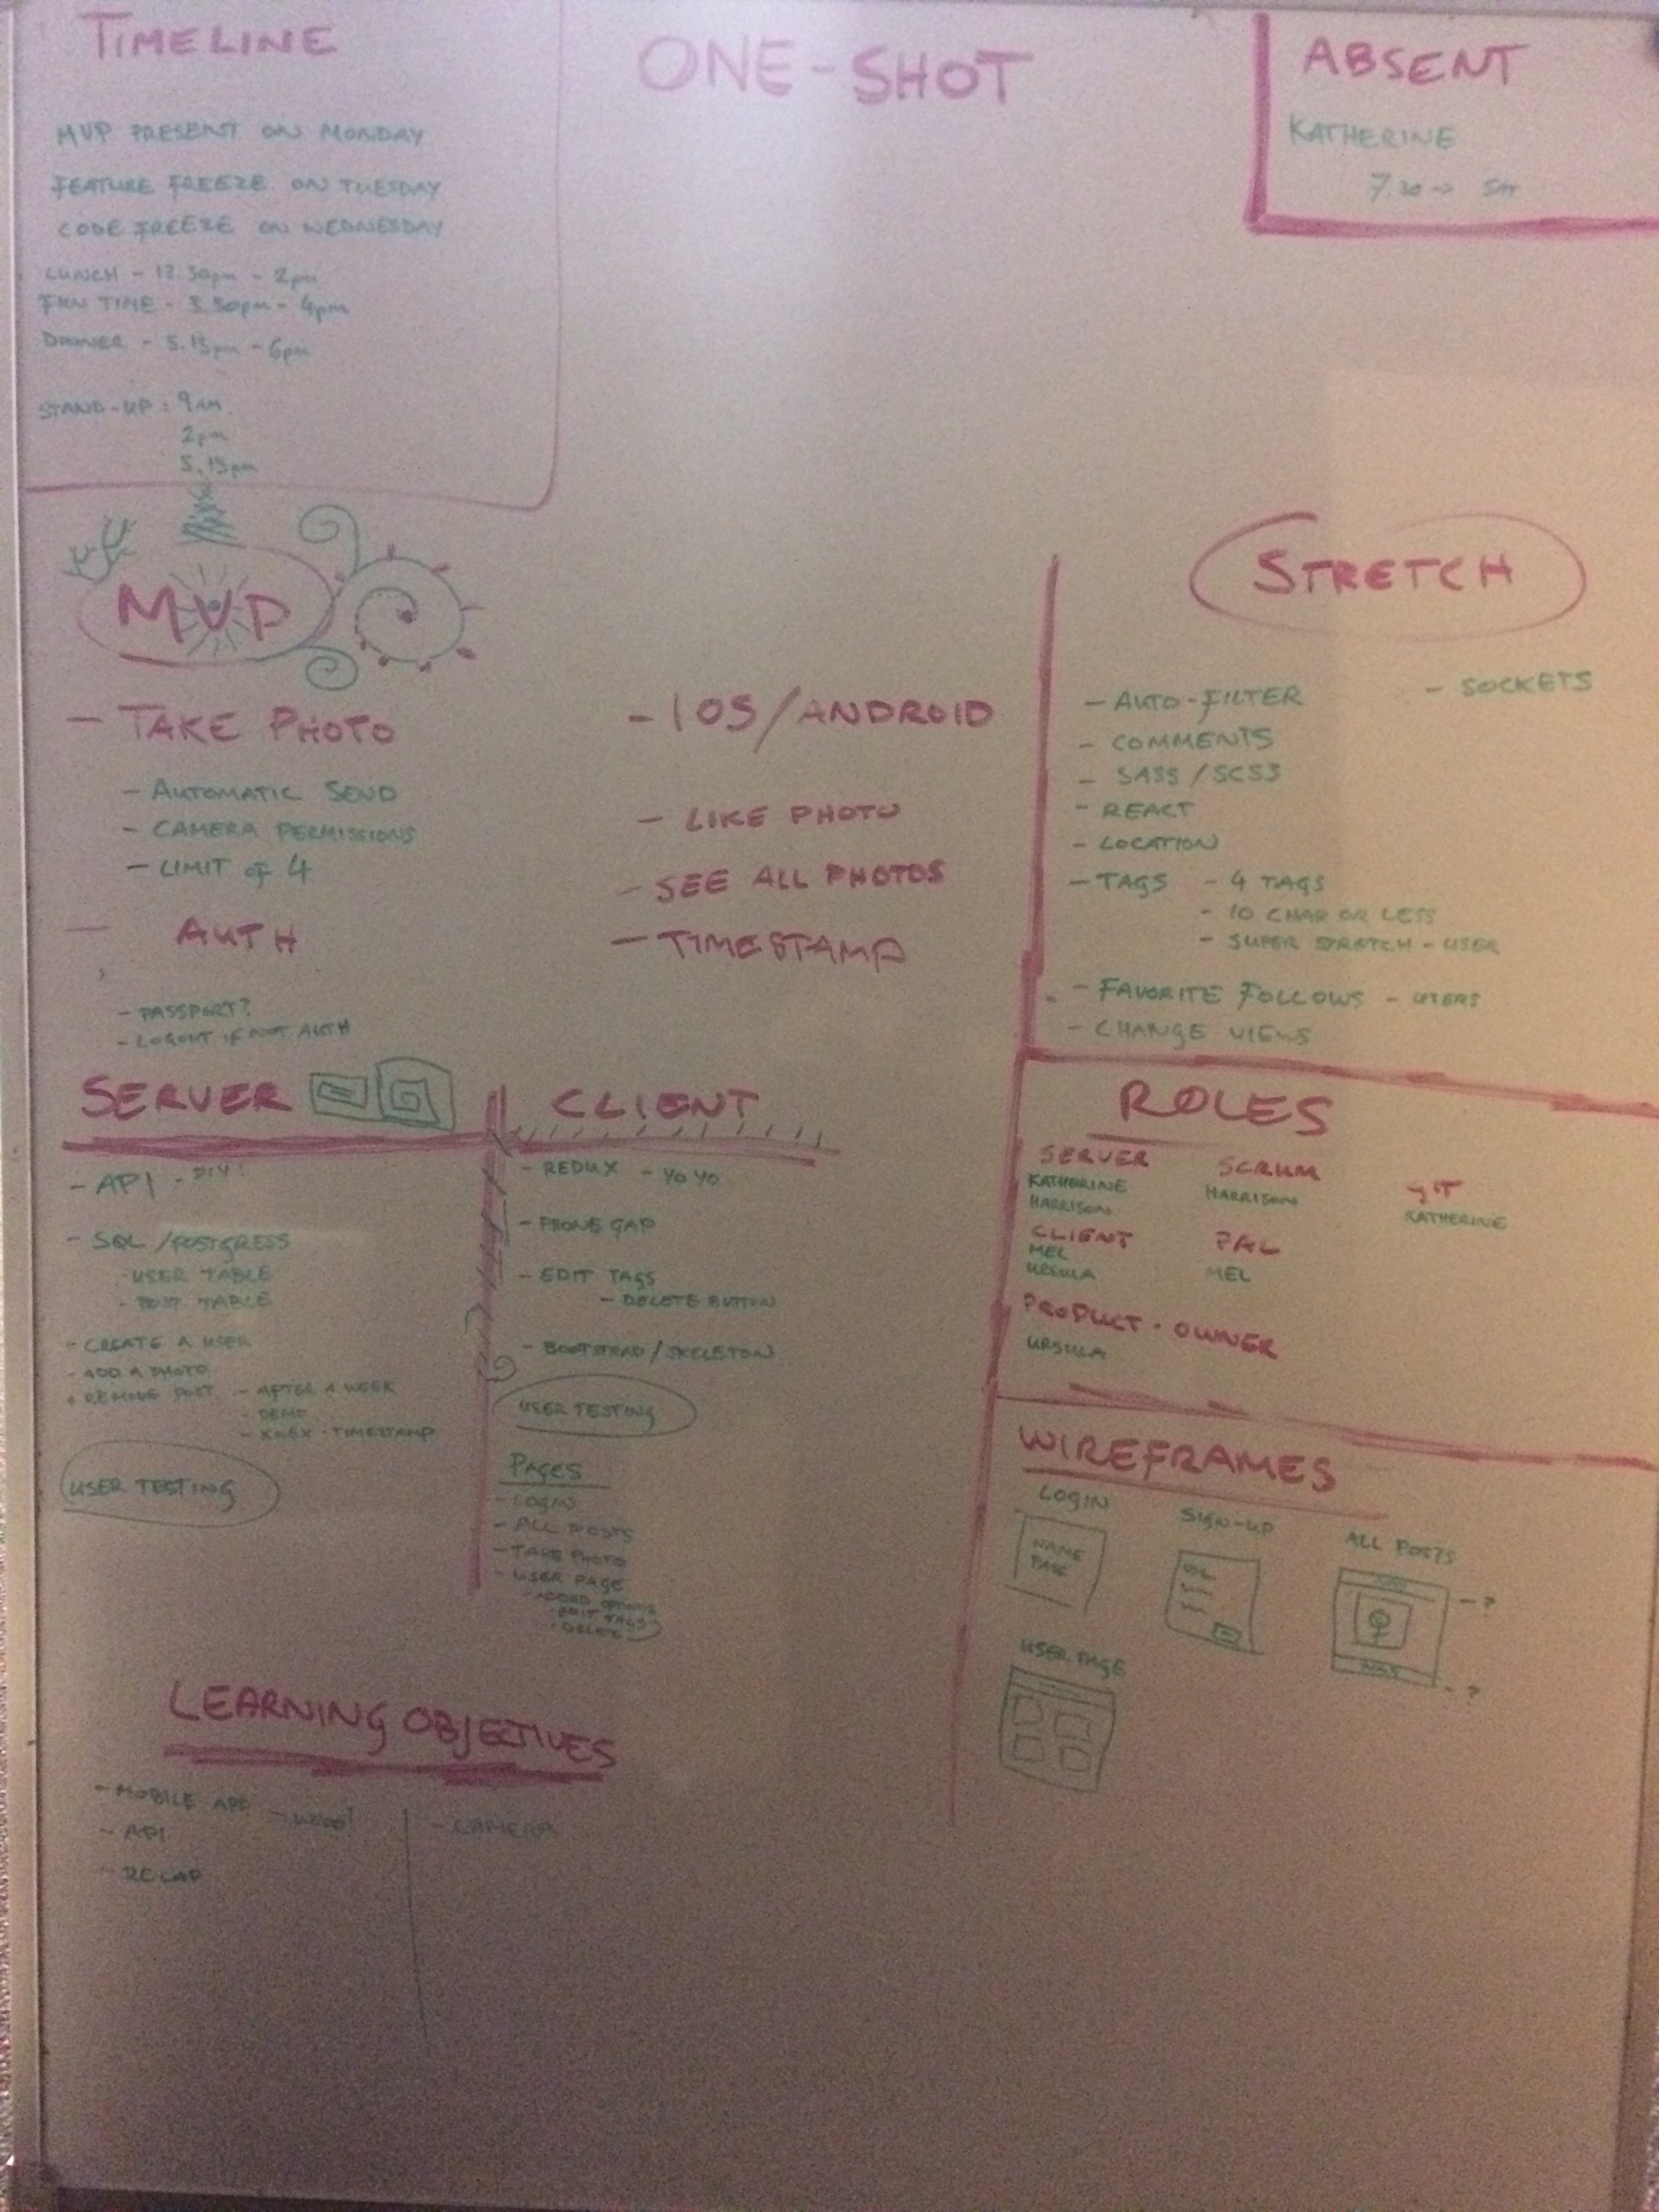 TIMELINE
MVP PRESENT ON MONDAY
FEATURE FREEZE ON TUESDAY
CODE FREEZE ON WEDNESDAY
LUNCH - 12.30pm - 2pm
FUN TIME - 3.30pm - 4pm
DINNER - 5.15pm - 6pm
STAND-UP: 9AM
2pm
5.15pm
ONE-SHOT
ABSENT
KATHERINE
7.30 → SAT
MVP
- TAKE PHOTO
- AUTOMATIC SEND
- CAMERA PERMISSIONS
- LIMIT of 4
- AUTH
- PASSPORT?
- LOGOUT IF NOT AUTH
- IOS/ANDROID
- LIKE PHOTO
- SEE ALL PHOTOS
- TIMESTAMP
STRETCH
- AUTO-FILTER
- COMMENTS
- SASS/SCSS
- REACT
- LOCATION
- TAGS - 4 TAGS
- 10 CHAR OR LESS
- SUPER STRETCH - USER
- FAVORITE FOLLOWS - USERS
- CHANGE VIEWS
- SOCKETS
SERVER
- API - DIY!
- SQL/POSTGRESS
- USER TABLE
- POST TABLE
- CREATE A USER
- ADD A PHOTO
- REMOVE POST - AFTER A WEEK
- DEMO
- KNEX - TIMESTAMP
USER TESTING
CLIENT
- REDUX - YO YO
- PHONE GAP
- EDIT TAGS
- DELETE BUTTON
- BOOTSTRAP/SKELETON
USER TESTING
PAGES
- LOGIN
- ALL POSTS
- TAKE PHOTO
- USER PAGE
- ADDED OPTIONS
- EDIT TAGS?
- DELETE
ROLES
SERVER
KATHERINE
HARRISON
SCRUM
HARRISON
GIT
KATHERINE
CLIENT
MEL
URSULA
PAL
MEL
PRODUCT - OWNER
URSULA
WIREFRAMES
LOGIN
NAME
PAGE
SIGN-UP
ALL POSTS
- ?
- ?
USER PAGE
LEARNING OBJECTIVES
- MOBILE APP - WOOO!
- API
- RECAP
- CAMERA